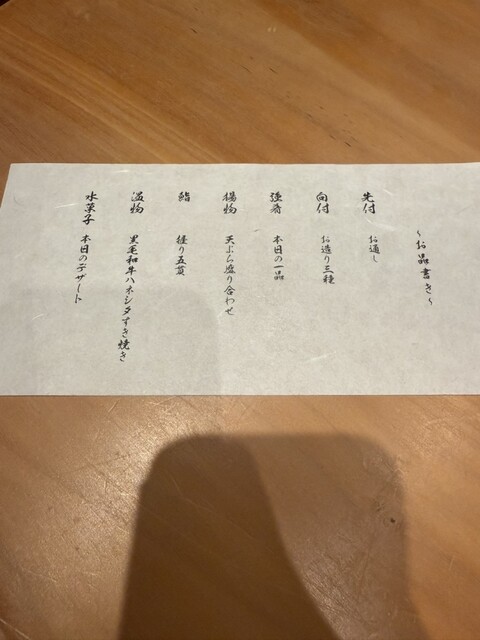 ~お品書き~
先付 お通し
向付 お造り三種
強肴 本日の一品
揚物 天ぷら盛り合わせ
鮨 握り五貫
温物 黒毛和牛ハネシタすき焼き
水菓子 本日のデザート